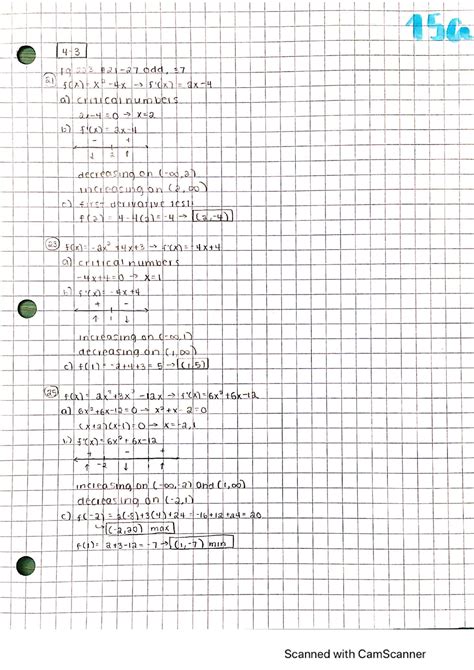 15a
4.3
pg 223 #21-27 odd, 57
(21) f(x) = x² - 4x → f'(x) = 2x - 4
a) critical numbers
2x-4=0 → x=2
b) f'(x) = 2x-4
- +
↓ 2 ↑
decreasing on (-∞,2)
increasing on (2,∞)
c) first derivative test:
f(2) = 4-4(2) = -4 → (2,-4)
(23) f(x) = -2x² + 4x + 3 → f'(x) = -4x + 4
a) critical numbers
-4x+4=0 → x=1
b) f'(x) = -4x+4
+ -
↑ 1 ↓
increasing on (-∞,1)
decreasing on (1,∞)
c) f(1) = -2+4+3 = 5 → (1,5)
(25) f(x) = 2x³+3x²-12x → f'(x) = 6x²+6x-12
a) 6x²+6x-12=0 → x²+x-2=0
(x+2)(x-1)=0 → x=-2,1
b) f'(x) = 6x²+6x-12
+ - +
↑ -2 ↓ 1 ↑
increasing on (-∞,-2) and (1,∞)
decreasing on (-2,1)
c) f(-2) = 2(-8)+3(4)+24 = -16+12+24 = 20
↳ (-2,20) max
f(1) = 2+3-12 = -7 → (1,-7) min
Scanned with CamScanner